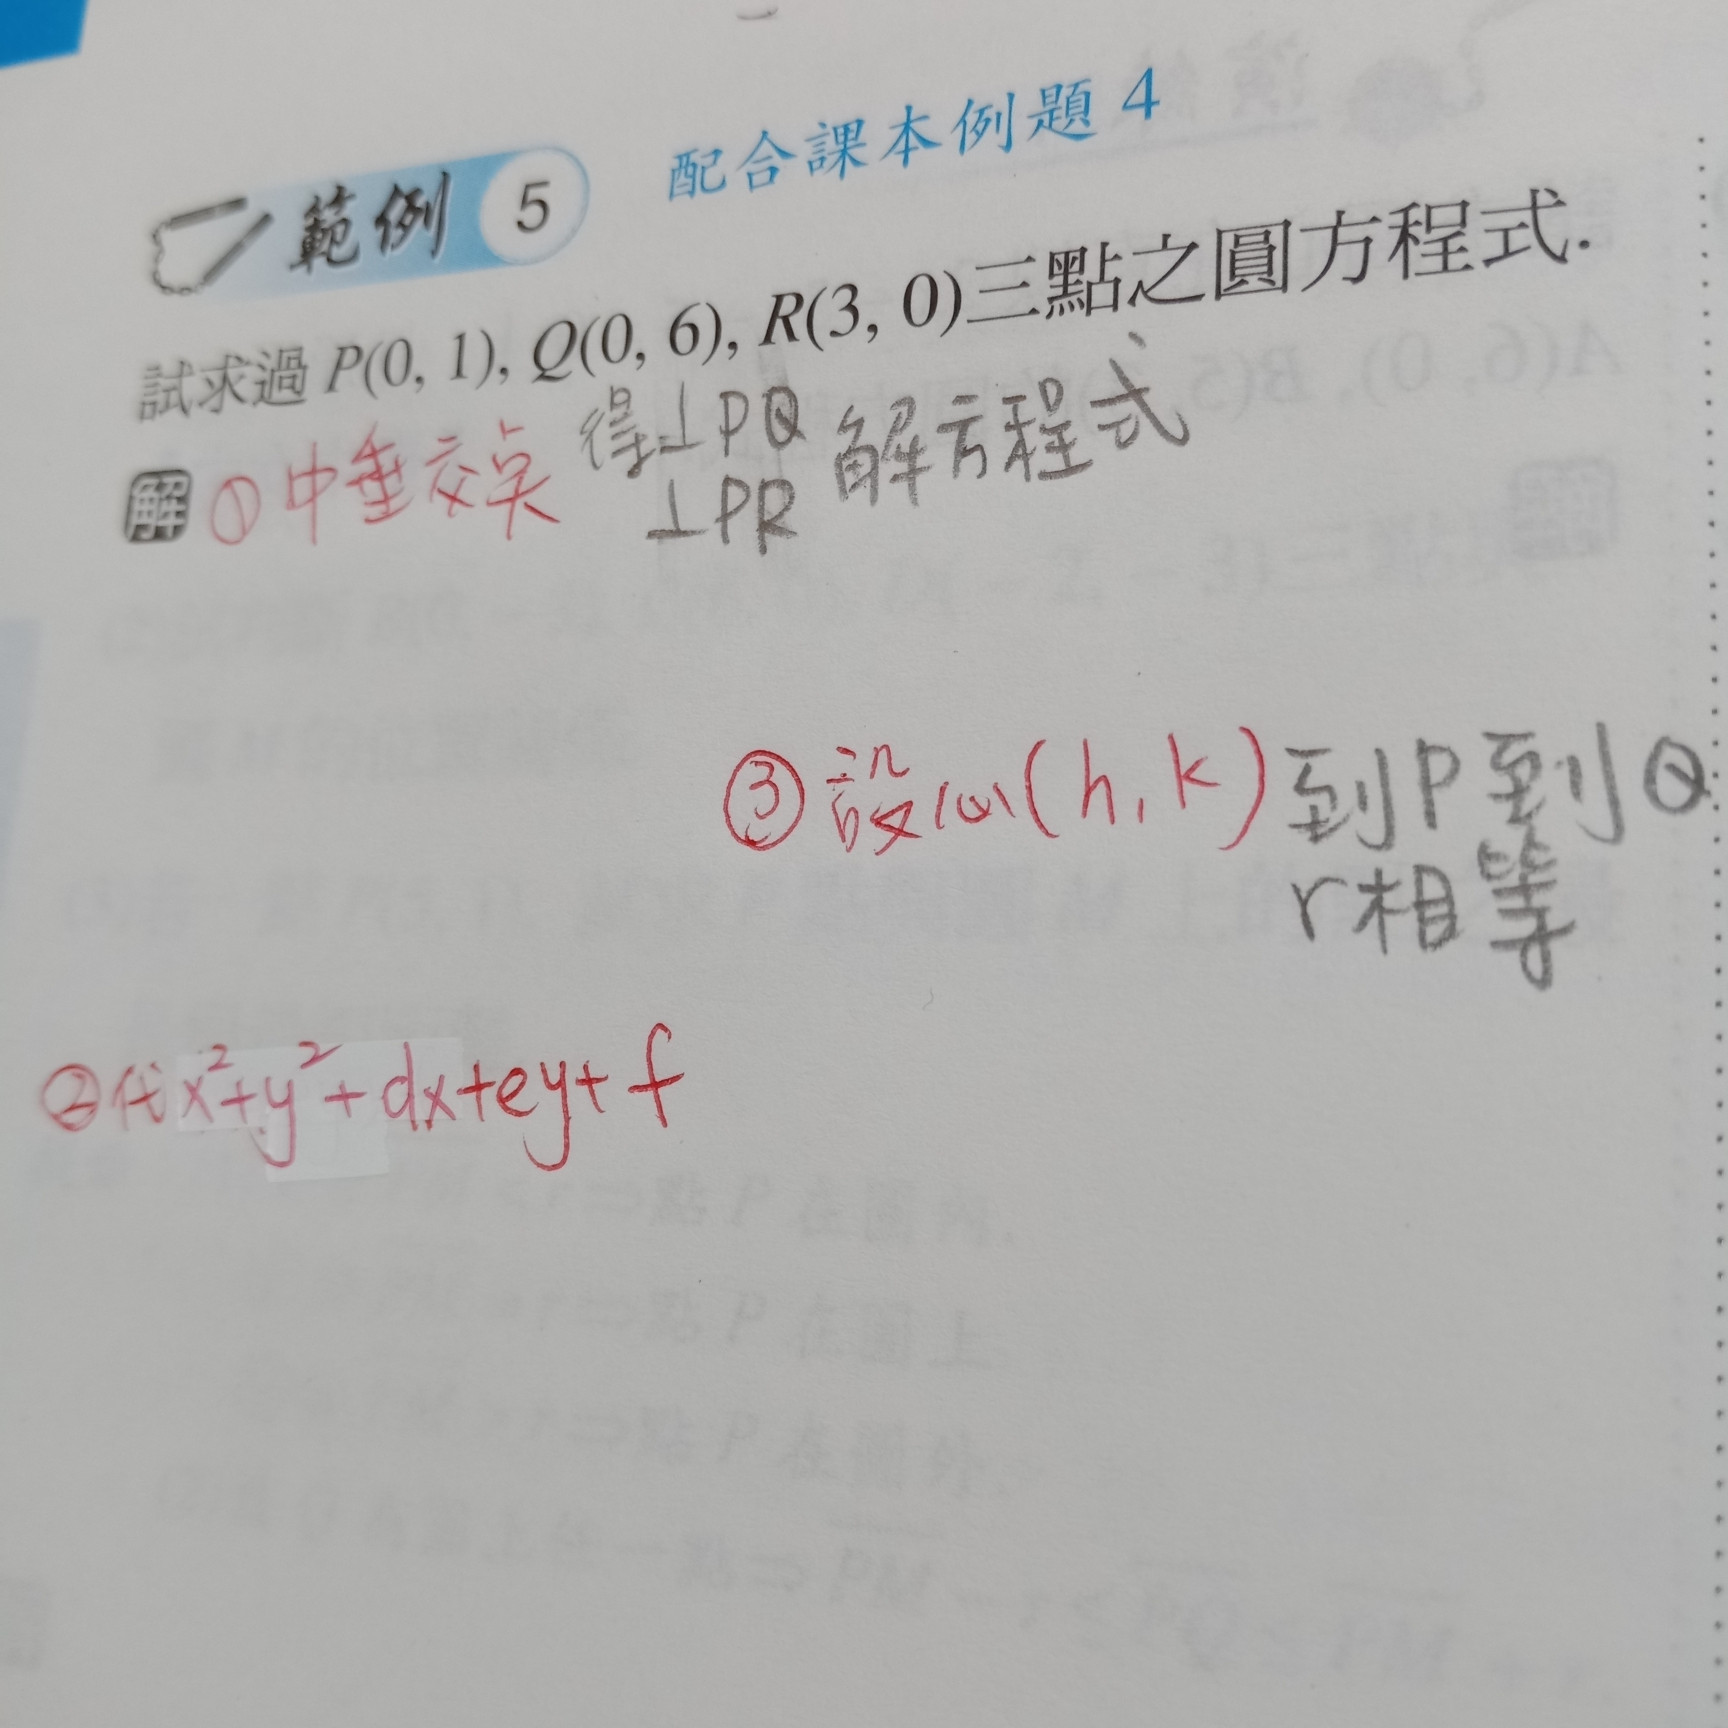 範例 5 配合課本例題 4
試求過 P(0, 1), Q(0, 6), R(3, 0)三點之圓方程式.
解 ①中垂交点 得⊥PQ 解方程式
⊥PR
③設心(h, k)到P到Q
r相等
②代x²+y²+dx+ey+f